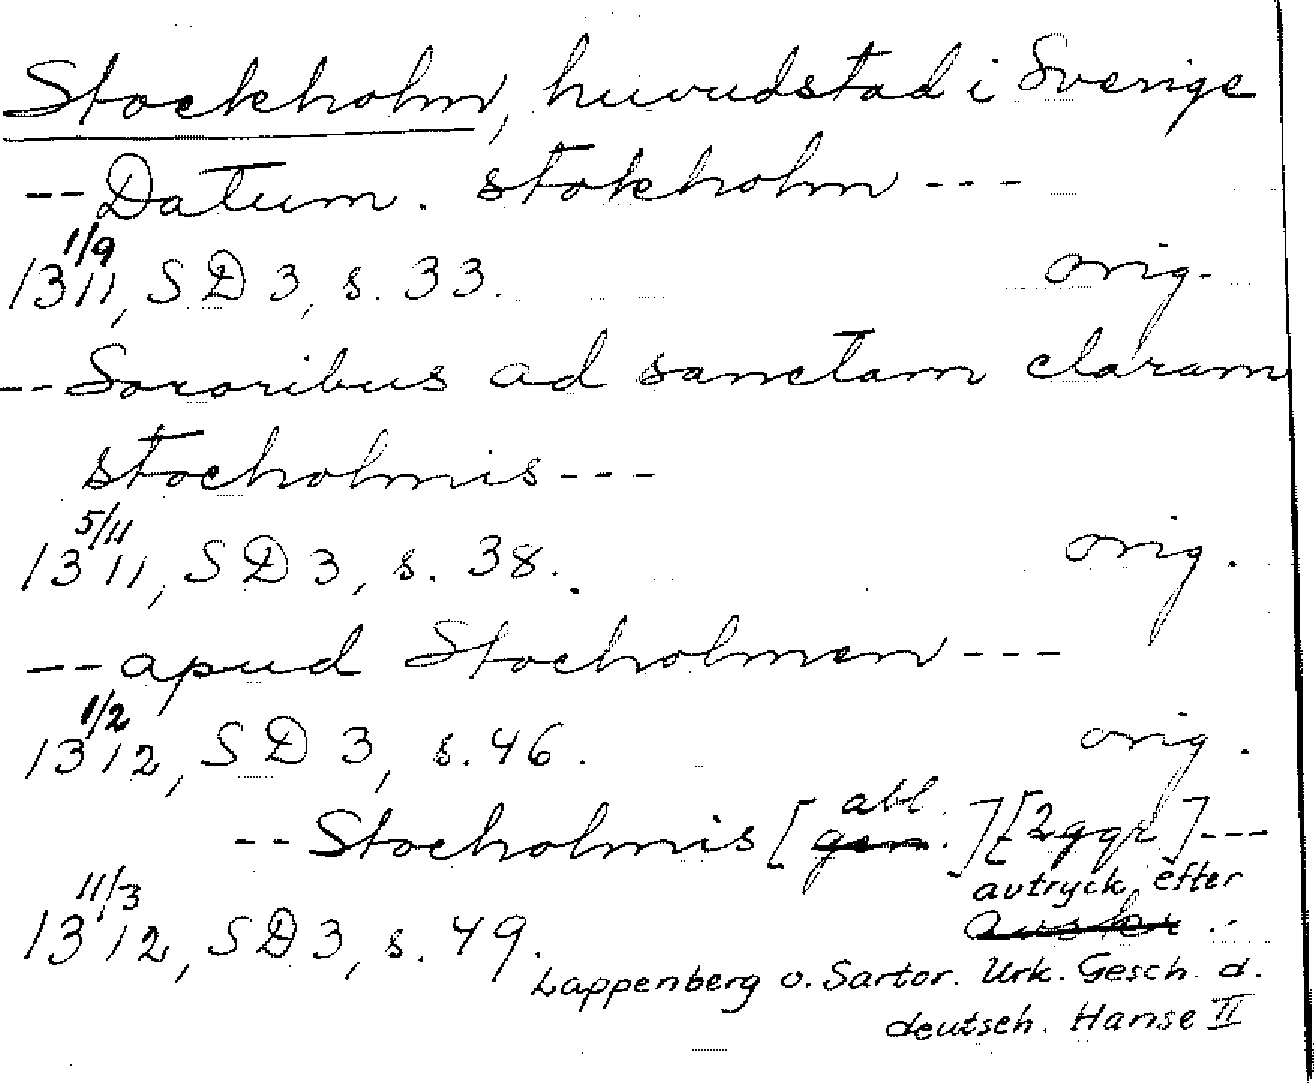 Stockholm, huvudstad i Sverige
-- Datum. stokholm ---
1/9
1311, SD 3, s. 33. orig.
-- Sororibus ad sanctam claram
stocholmis ---
5/11
1311, SD 3, s. 38. orig.
-- apud Stocholmen ---
1/2
1312, SD 3, s. 46. orig.
abl.
-- Stocholmis [gen.] [2ggr] ---
11/3 avtryck efter
1312, SD 3, s. 49.
Lappenberg o. Sartor. Urk. Gesch. d.
deutsch. Hanse II